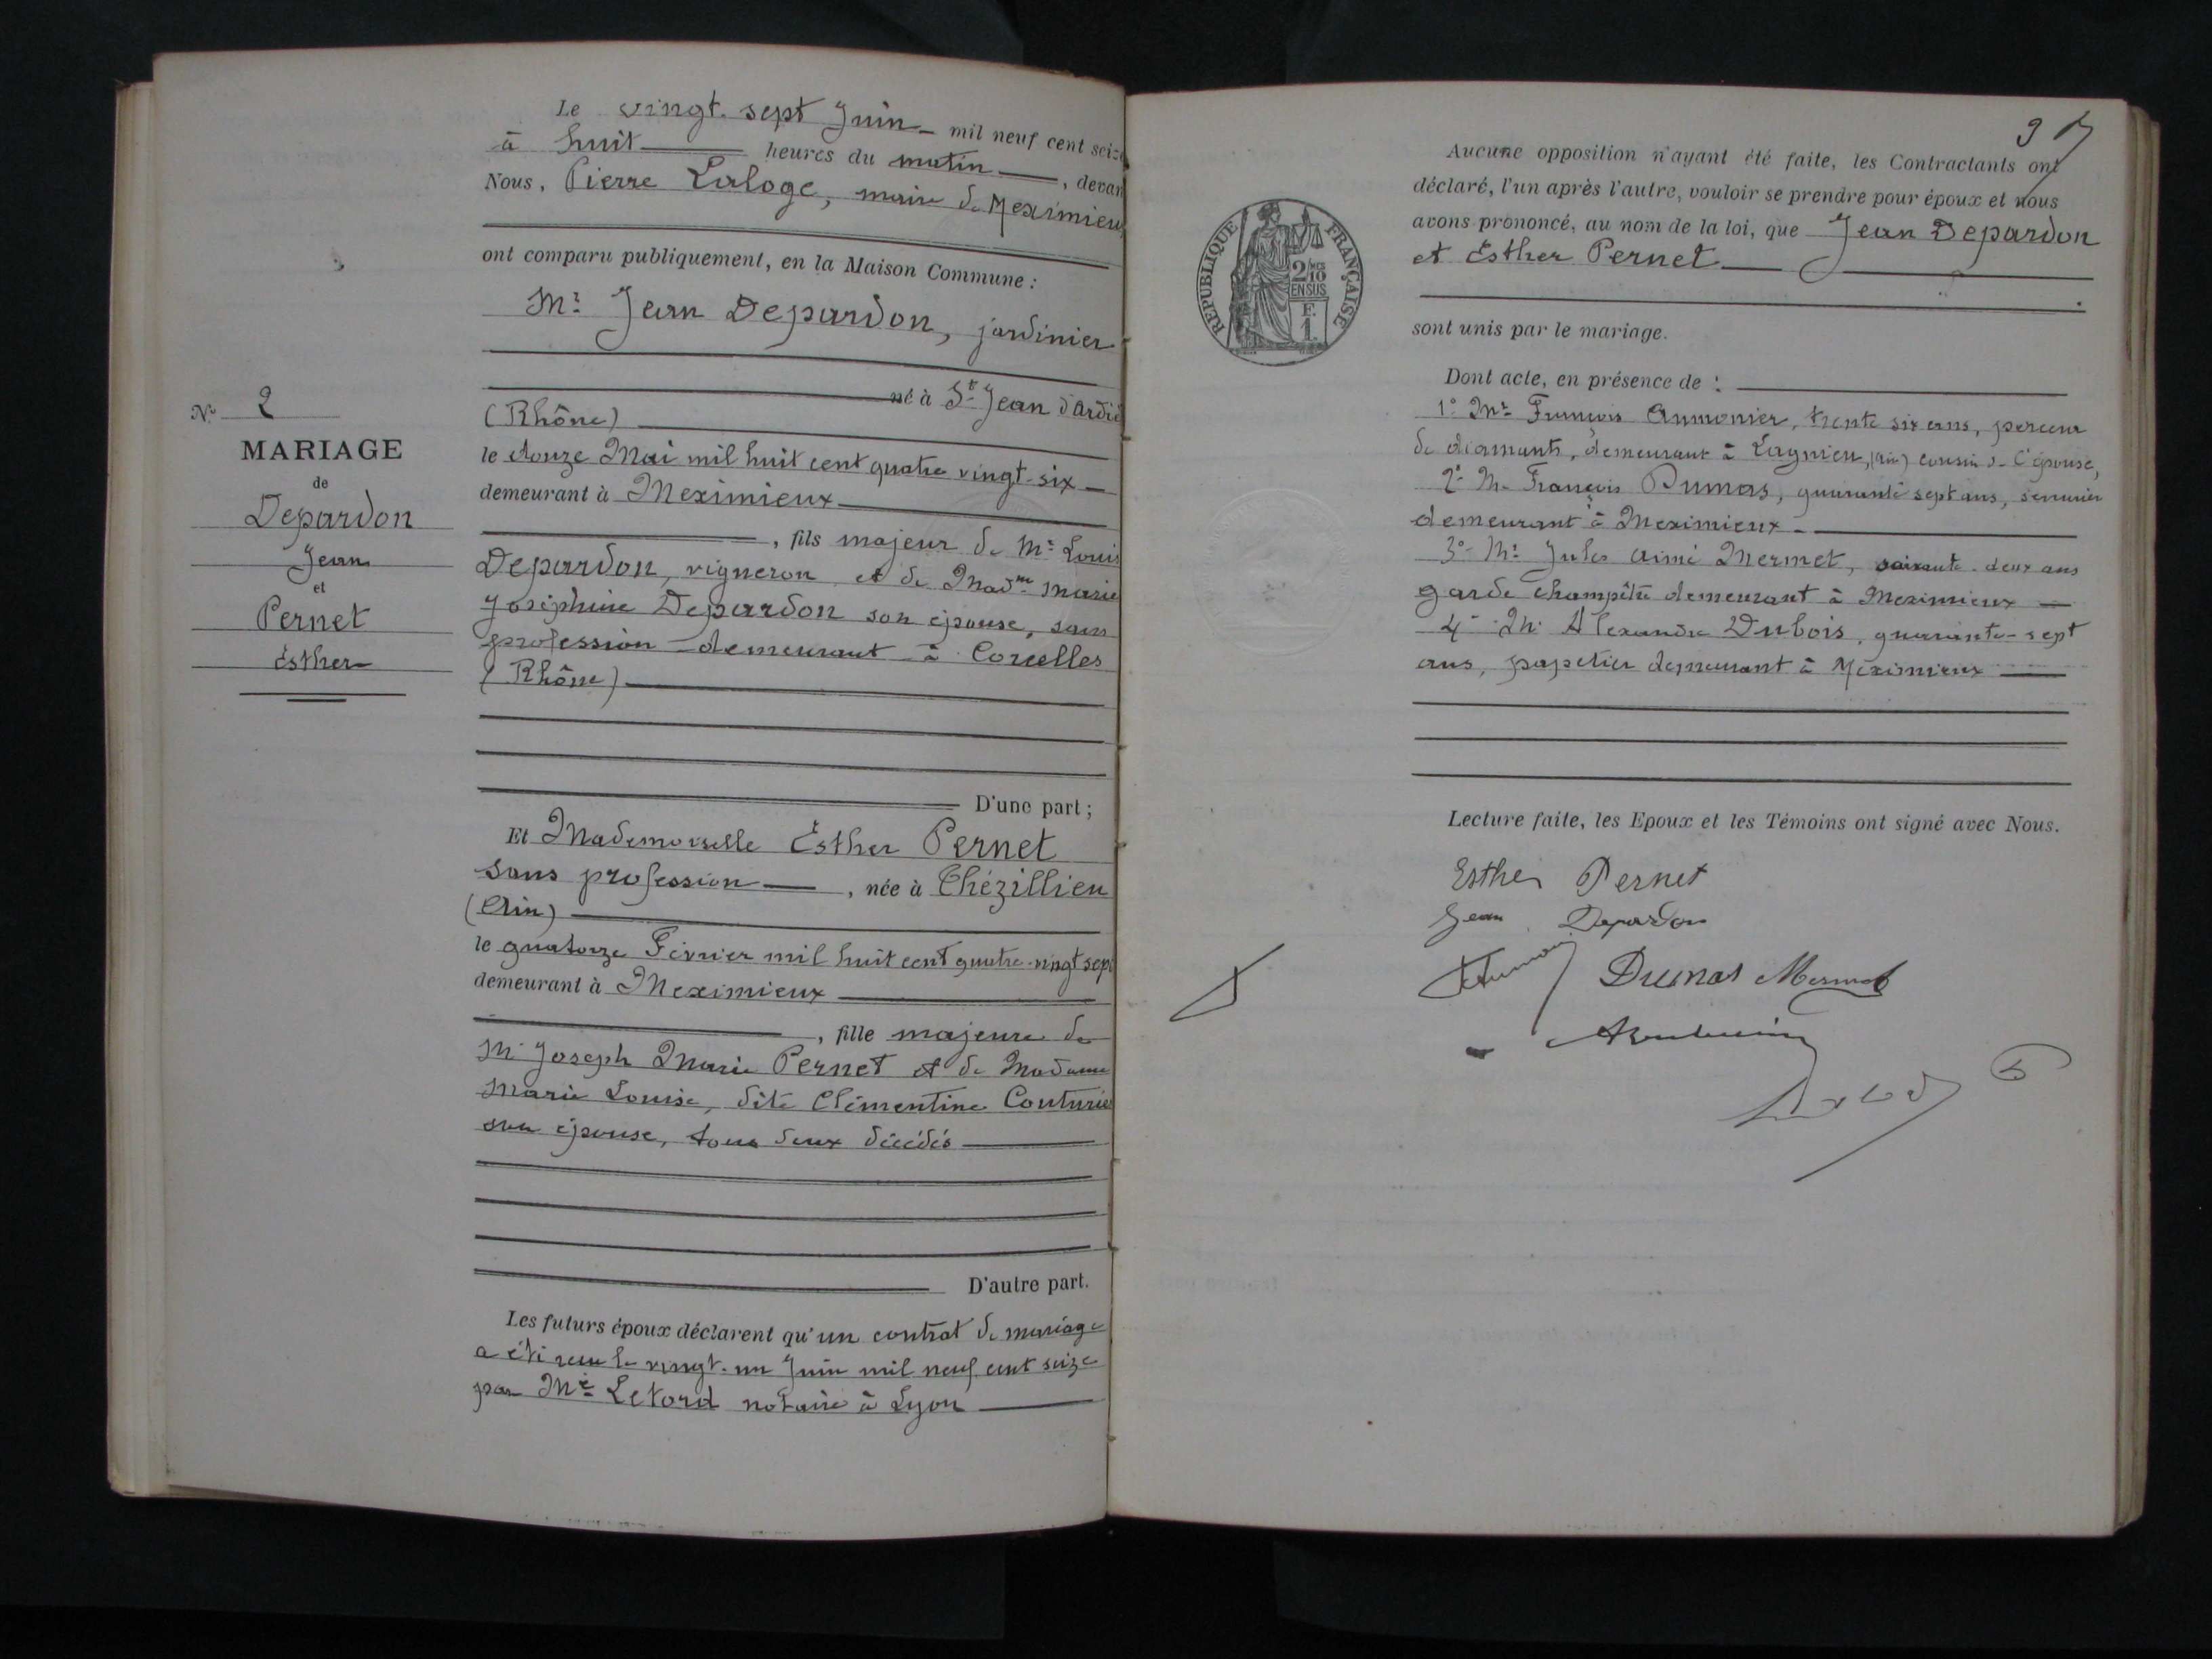 Le vingt-sept Juin - mil neuf cent seize
à huit heures du matin, devan
Nous, Pierre Laloge, maire de Meximieux
ont comparu publiquement, en la Maison Commune :
Mr Jean Depardon, jardinier
né à St Jean d'Ardiè
(Rhône)
le douze Mai mil huit cent quatre vingt-six
demeurant à Meximieux
, fils majeur de Mr Louis
Depardon, vigneron et de Madme Marie
Joséphine Depardon son épouse, sans
profession demeurant à Corcelles
(Rhône)
D'une part ;
Et Mademoiselle Esther Pernet
sans profession, née à Thézillieu
(Ain)
le quatorze Février mil huit cent quatre-vingt sept
demeurant à Meximieux
, fille majeure de
Mr Joseph Marie Pernet et de Madame
Marie Louise, dite Clémentine Couturier
son épouse, tous deux décédés
D'autre part.
Les futurs époux déclarent qu'un contrat de mariage
a été reçu le vingt-un Juin mil neuf cent seize
par Me Letord notaire à Lyon
No 2
MARIAGE
de
Depardon
Jean
et
Pernet
Esther
Aucune opposition n'ayant été faite, les Contractants ont
déclaré, l'un après l'autre, vouloir se prendre pour époux et nous
avons prononcé, au nom de la loi, que Jean Depardon
et Esther Pernet
sont unis par le mariage.
RÉPUBLIQUE FRANÇAISE
2/10
EN SUS
F.
1.
Dont acte, en présence de :
1° Mr François Aumonier, trente six ans, perceur
de diamants, demeurant à Lagnieu, (Ain) cousin de l'épouse,
2° Mr François Dumas, quarante sept ans, serrurier
demeurant à Meximieux
3° Mr Jules Aimé Mermet, soixante-deux ans
garde champêtre demeurant à Meximieux
4° Mr Alexandre Dubois, quarante-sept
ans, papetier demeurant à Meximieux
Lecture faite, les Epoux et les Témoins ont signé avec Nous.
Esther Pernet
Jean Depardon
Dumas Mermet